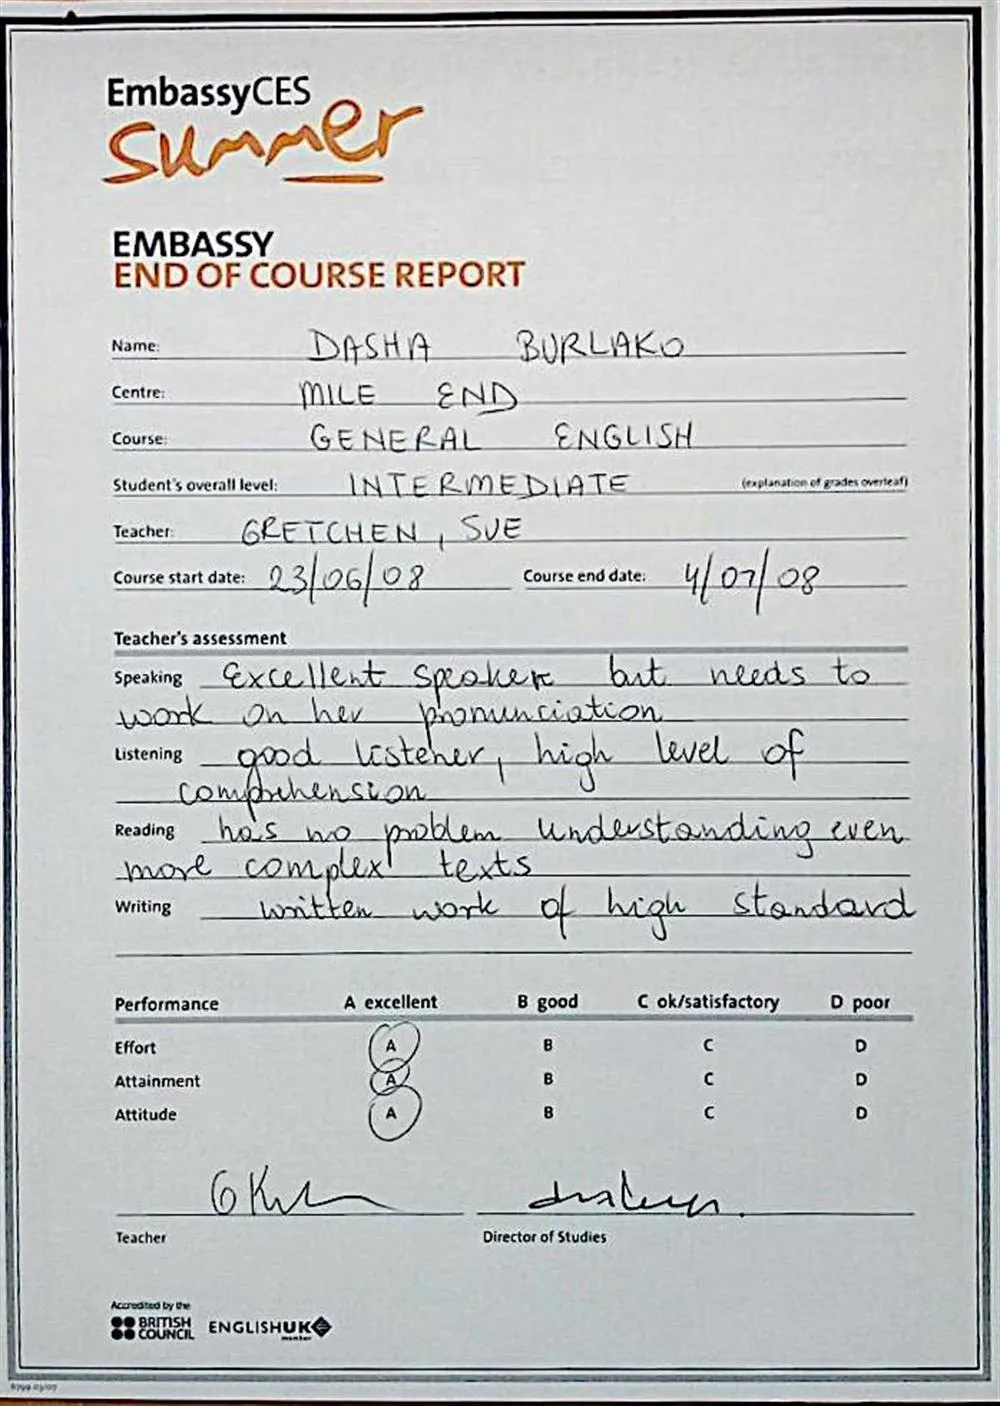 EmbassyCES
summer
EMBASSY
END OF COURSE REPORT
Name: DASHA BURLAKO
Centre: MILE END
Course: GENERAL ENGLISH
Student's overall level: INTERMEDIATE (explanation of grades overleaf)
Teacher: GRETCHEN, SUE
Course start date: 23/06/08 Course end date: 4/07/08
Teacher's assessment
Speaking Excellent speaker but needs to
work on her pronunciation
Listening good listener, high level of
comprehension
Reading has no problem understanding even
more complex texts
Writing written work of high standard
Performance A excellent B good C ok/satisfactory D poor
Effort A B C D
Attainment A B C D
Attitude A B C D
Teacher Director of Studies
Accredited by the
BRITISH
COUNCIL
ENGLISHUK
member